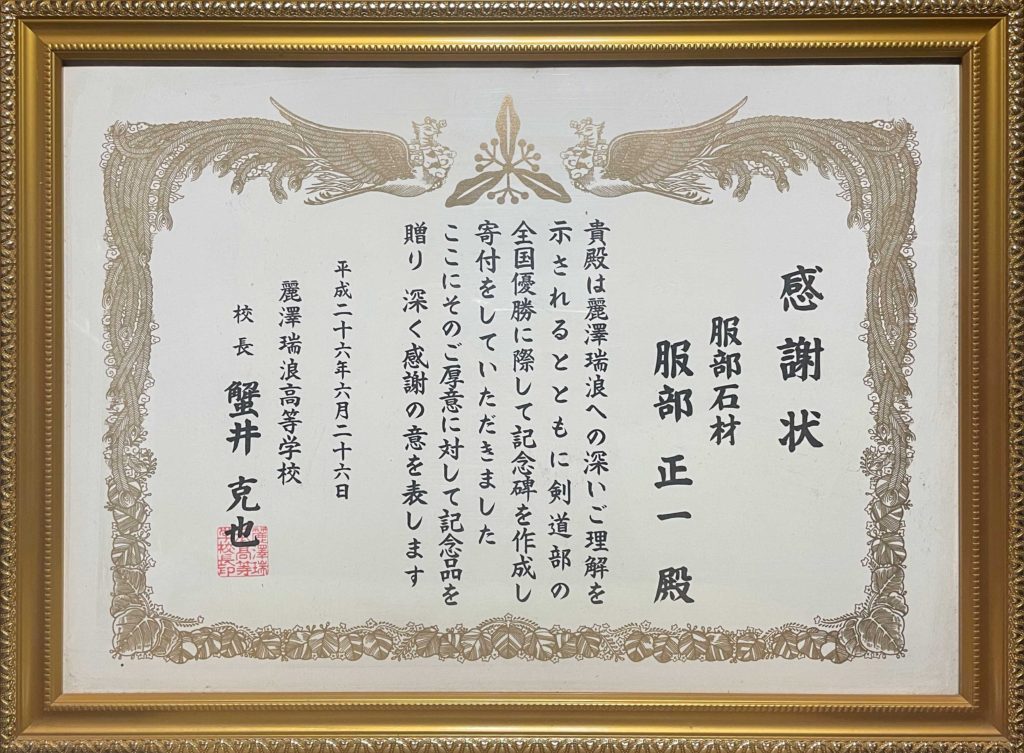 感謝状
服部石材
服部 正一 殿
貴殿は麗澤瑞浪への深いご理解を
示されるとともに剣道部の
全国優勝に際して記念碑を作成し
寄付をしていただきました
ここにそのご厚意に対して記念品を
贈り 深く感謝の意を表します
平成二十六年六月二十六日
麗澤瑞浪高等学校
校長 蟹井 克也
麗澤瑞
浪高等
学校長印